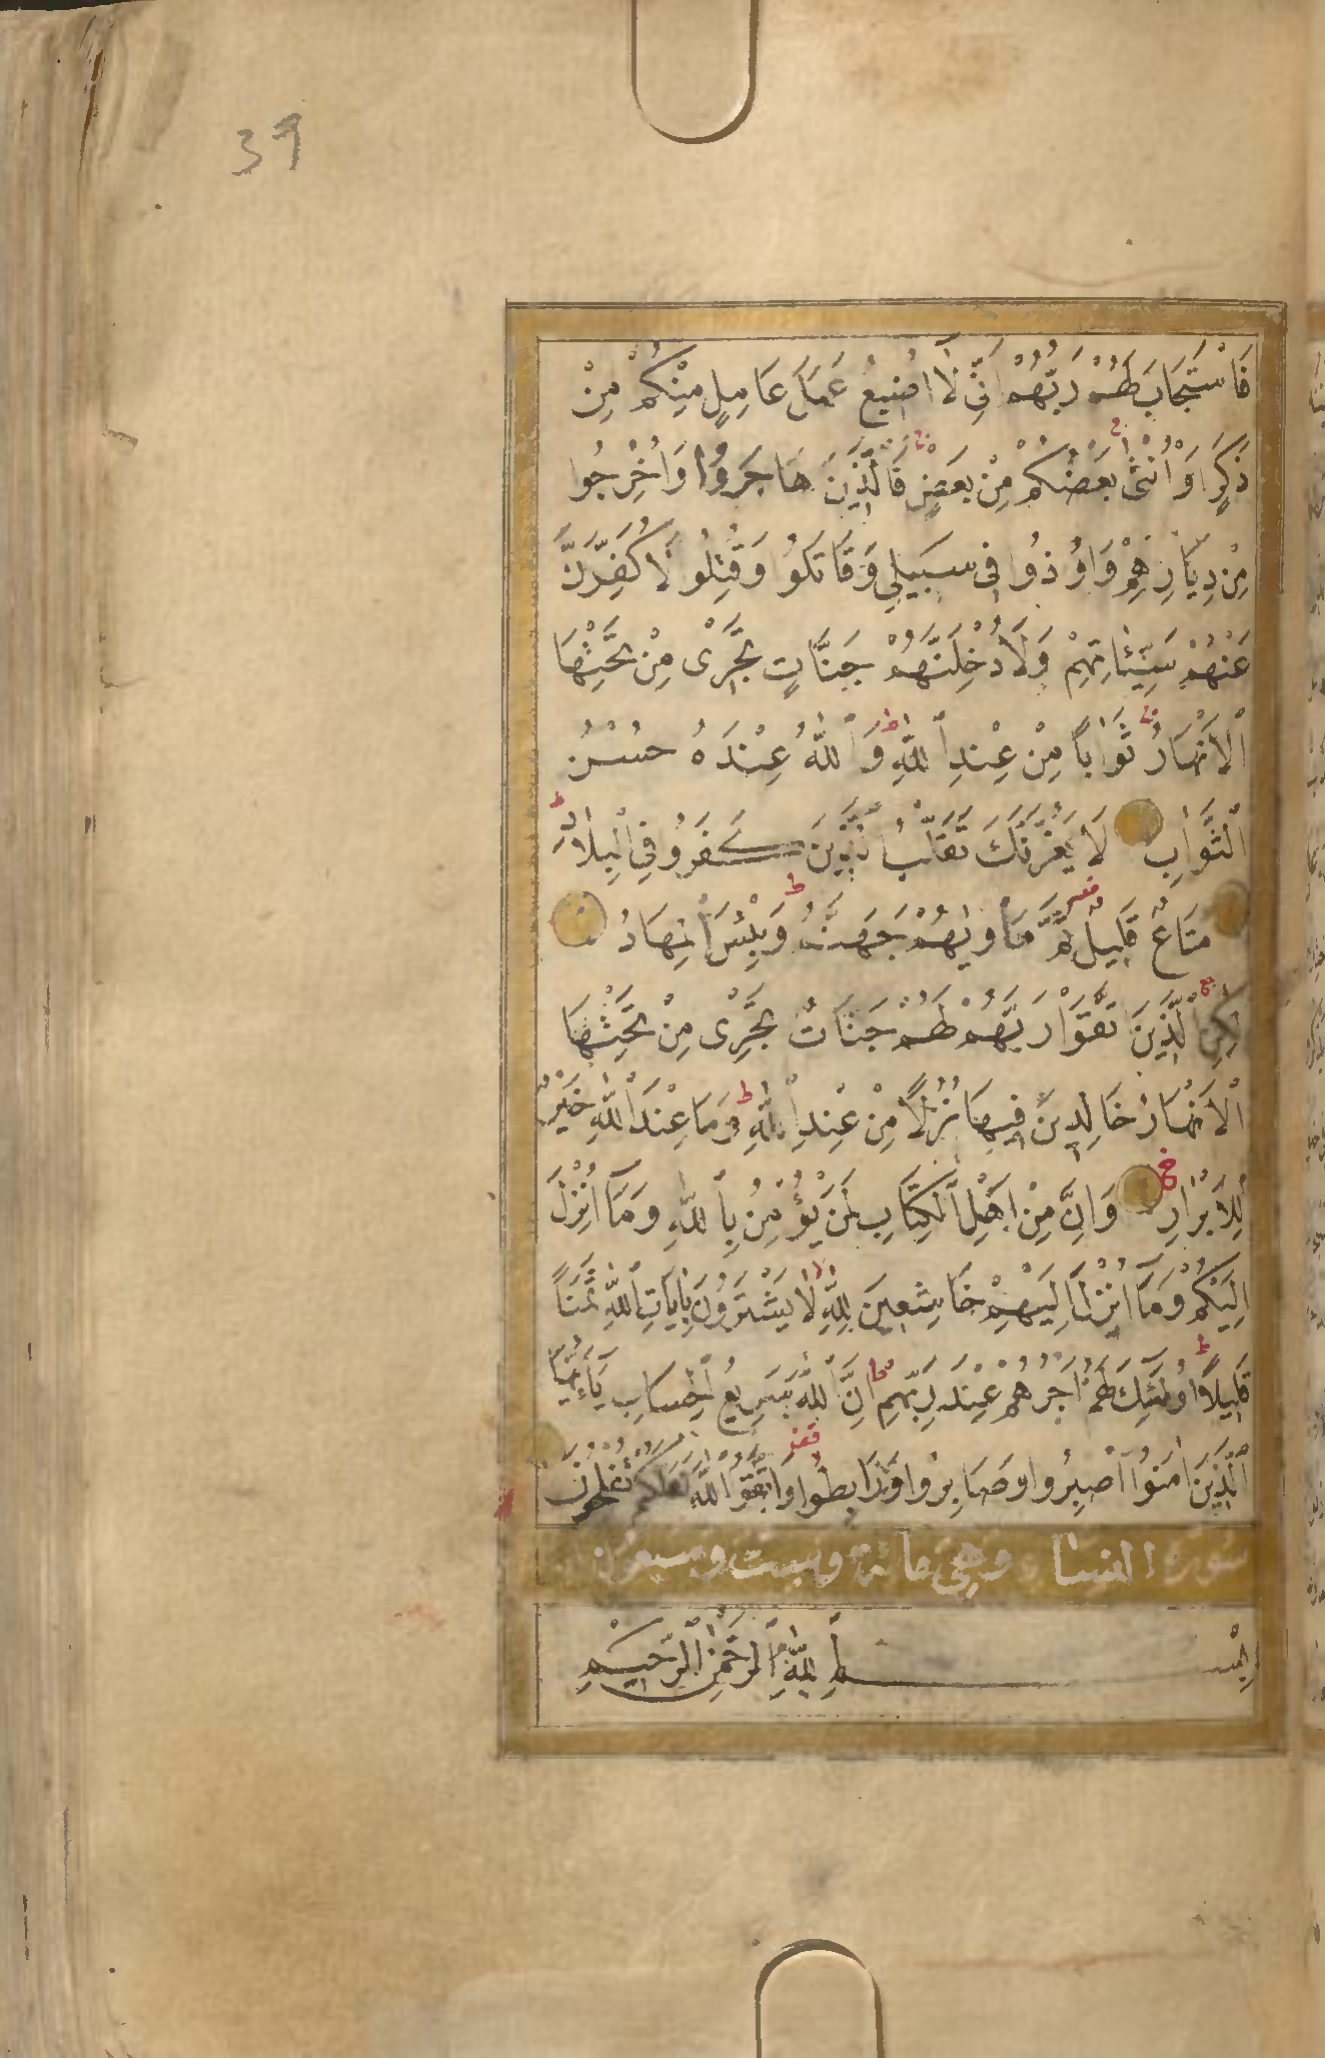 39
فَاسْتَجَابَ لَهُمْ رَبُّهُمْ اَنِّى لَا اُضِيعُ عَمَلَ عَامِلٍ مِنْكُمْ مِنْ
ذَكَرٍ اَوْ اُنْثٰى بَعْضُكُمْ مِنْ بَعْضٍ فَالَّذِينَ هَاجَرُوا وَاُخْرِجُوا
مِنْ دِيَارِهِمْ وَاُوذُوا فِى سَبِيلِى وَقَاتَلُو وَقُتِلُو لَاُكَفِّرَنَّ
عَنْهُمْ سَيِّئَاتِهِمْ وَلَاُدْخِلَنَّهُمْ جَنَّاتٍ تَجْرِى مِنْ تَحْتِهَا
الْاَنْهَارُ ثَوَاباً مِنْ عِنْدِ اللّٰهِ وَاللّٰهُ عِنْدَهُ حُسْنُ
الثَّوَابِ لَا يَغُرَّنَّكَ تَقَلُّبُ الَّذِينَ كَفَرُو فِى الْبِلَادِ
مَتَاعٌ قَلِيلٌ ثُمَّ مَأْوٰيهُمْ جَهَنَّمُ وَبِئْسَ الْمِهَادُ
لٰكِنِ الَّذِينَ اتَّقَوْا رَبَّهُمْ لَهُمْ جَنَّاتٌ تَجْرِى مِنْ تَحْتِهَا
الْاَنْهَارُ خَالِدِينَ فِيهَا نُزُلًا مِنْ عِنْدِ اللّٰهِ وَمَا عِنْدَ اللّٰهِ خَيْرٌ
لِلْاَبْرَارِ وَاِنَّ مِنْ اَهْلِ الْكِتَابِ لَمَنْ يُؤْمِنُ بِاللّٰهِ وَمَا اُنْزِلَ
اِلَيْكُمْ وَمَا اُنْزِلَ اِلَيْهِمْ خَاشِعِينَ لِلّٰهِ لَا يَشْتَرُونَ بِاٰيَاتِ اللّٰهِ ثَمَناً
قَلِيلًا اُولٰئِكَ لَهُمْ اَجْرُهُمْ عِنْدَ رَبِّهِمْ اِنَّ اللّٰهَ سَرِيعُ الْحِسَابِ يَا اَيُّهَا
الَّذِينَ اٰمَنُوا اصْبِرُوا وَصَابِرُوا وَرَابِطُوا وَاتَّقُوا اللّٰهَ لَعَلَّكُمْ تُفْلِحُونَ
سورة النساء وهى مائة وست وسبعون
بِسْمِ اللّٰهِ الرَّحْمٰنِ الرَّحِيمِ